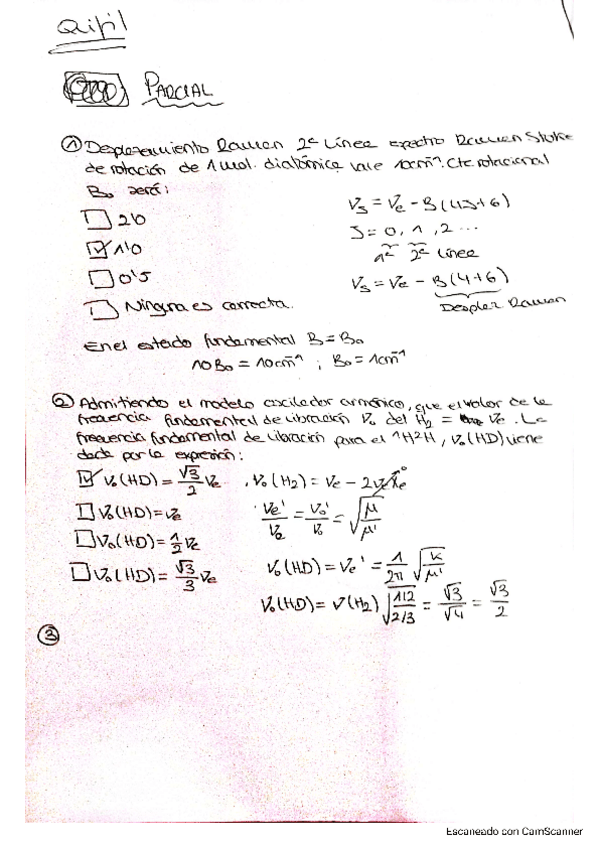 QifiI
PARCIAL
① Desplazamiento Raman 2ª línea espectro Raman Stoke
de rotación de 1 mol. diatómica vale 10cm⁻¹. Cte rotacional
B₀ será:
2'0
1'0
0'5
Ninguna es correcta.
Vs = Ve - B(4J+6)
J = 0, 1, 2 ...
1ª 2ª línea
Vs = Ve - B(4+6)
Desplaz Raman
En el estado fundamental B = B₀
10B₀ = 10cm⁻¹ ; B₀ = 1cm⁻¹
② Admitiendo el modelo oscilador armónico, que el valor de la
frecuencia fundamental de vibración V₀ del H₂ = Ve. La
frecuencia fundamental de vibración para el ¹H²H, V₀(HD) viene
dada por la expresión:
V₀(HD) = √3/2 Ve
V₀(HD) = Ve
V₀(HD) = 1/2 Ve
V₀(HD) = √3/3 Ve
V₀(H₂) = Ve - 2VeXe 0
Ve'/Ve = V₀'/V₀ = √μ/μ'
V₀(HD) = Ve' = 1/2π √K/μ'
V₀(HD) = V(H₂) √1/2/2/3 = √3/√4 = √3/2
③
Escaneado con CamScanner